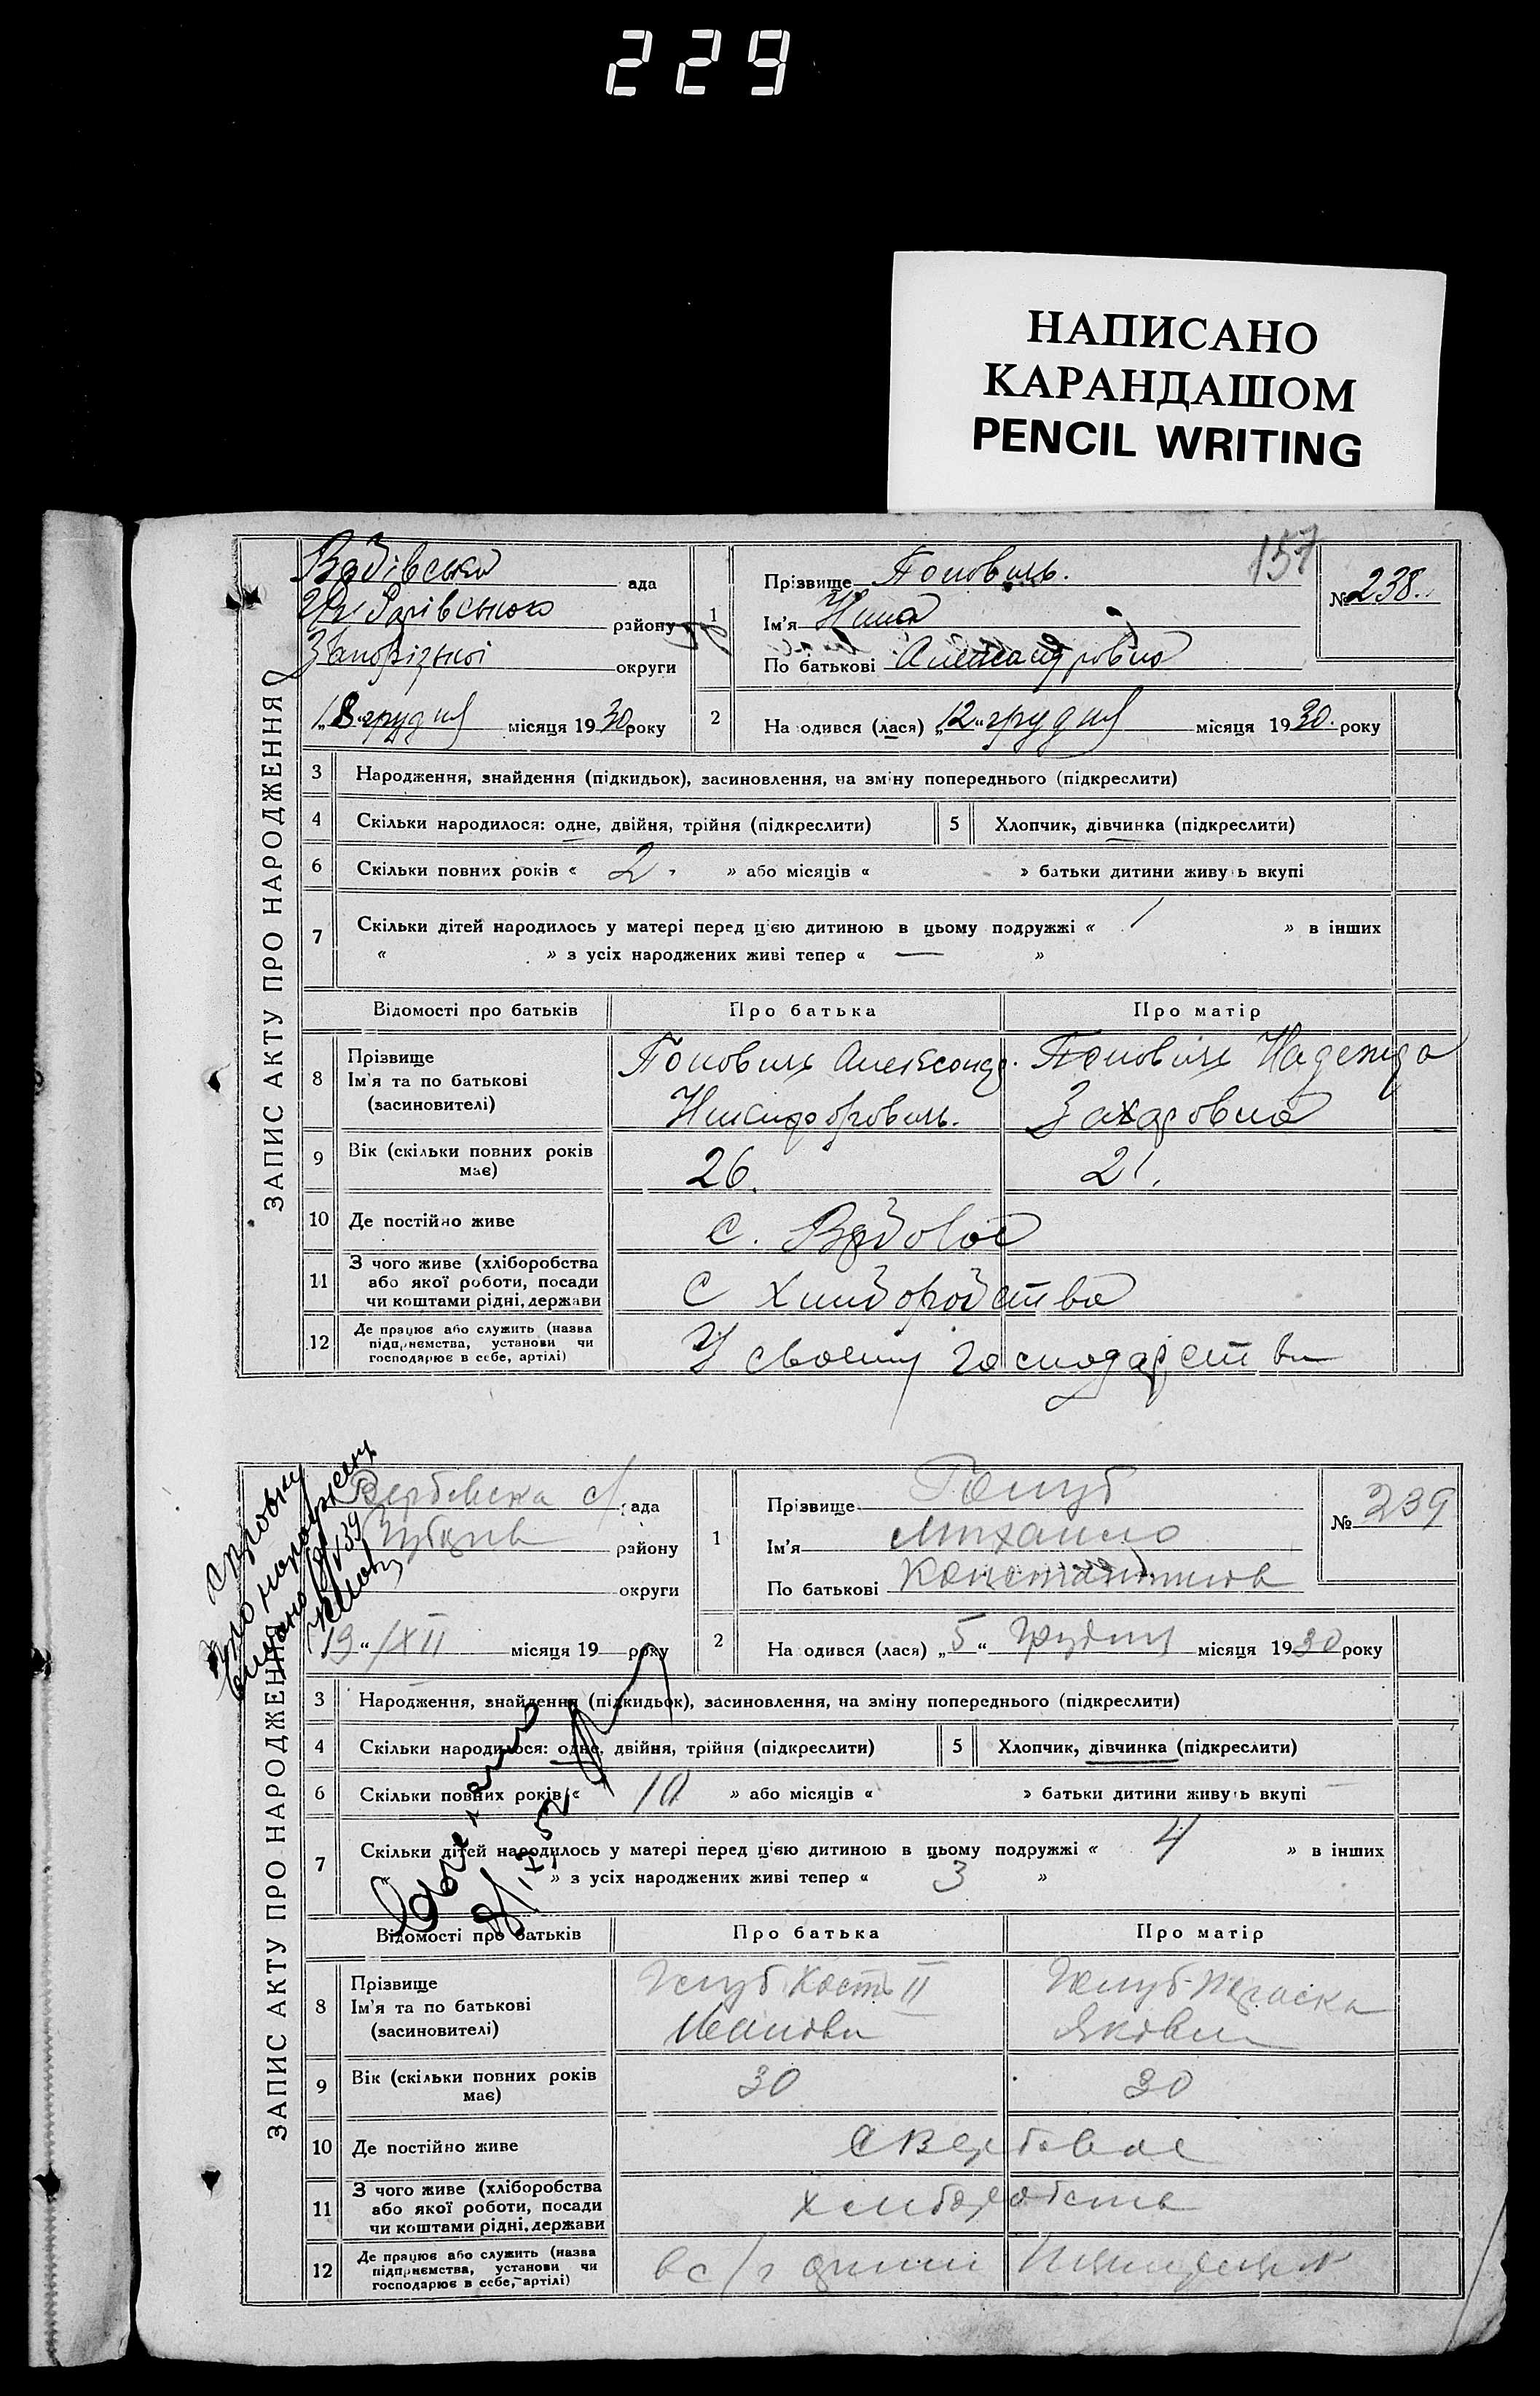 229
НАПИСАНО
КАРАНДАШОМ
PENCIL WRITING
157
ЗАПИС АКТУ ПРО НАРОДЖЕННЯ
ада
району
Запорізької округи
„18“ грудня місяця 1930 року
1
Прізвище Поповичь.
Ім'я Нина
По батькові Александровна
№ 238.
2 На одився (лася) „12“ грудня місяця 1930. року
3 Народження, знайдення (підкидьок), засиновлення, на зміну попереднього (підкреслити)
4 Скільки народилося: одне, двійня, трійня (підкреслити) 5 Хлопчик, дівчинка (підкреслити)
6 Скільки повних років « 2 » або місяців « » батьки дитини живу ь вкупі
7 Скільки дітей народилось у матері перед цією дитиною в цьому подружжі « 1 » в інших
« » з усіх народжених живі тепер « — »
Відомості про батьків Про батька Про матір
8 Прізвище
Ім'я та по батькові
(засиновителі)
Поповичь Александр.
Поповичь Надежда
Захаровна
9 Вік (скільки повних років має) 26. 21.
10 Де постійно живе с.
11 З чого живе (хліборобства або якої роботи, посади чи коштами рідні, держави С
12 Де працює або служить (назва підприємства, установи чи господарює в себе, артілі) У своему господарстви
ЗАПИС АКТУ ПРО НАРОДЖЕННЯ
Вербовска с/ ада
району
округи
19 “ /XII місяця 19 року
1
Прізвище Голуб
Ім'я Михаило
По батькові Константинов
№ 239
2 На одився (лася) „5“ грудня місяця 1930 року
3 Народження, знайдення (підкидьок), засиновлення, на зміну попереднього (підкреслити)
4 Скільки народилося: одне, двійня, трійня (підкреслити) 5 Хлопчик, дівчинка (підкреслити)
6 Скільки повних років « 10 » або місяців « » батьки дитини живу ь вкупі
7 Скільки дітей народилось у матері перед цією дитиною в цьому подружжі « 4 » в інших
» з усіх народжених живі тепер « 3 »
Відомості про батьків Про батька Про матір
8 Прізвище
Ім'я та по батькові
(засиновителі)
Голуб Кость II
Иванови
Голуб Параска
Яковл
9 Вік (скільки повних років має) 30 30
10 Де постійно живе с Вербовое
11 З чого живе (хліборобства або якої роботи, посади чи коштами рідні, держави хлиборобств
12 Де працює або служить (назва підприємства, установи чи господарює в себе, артілі) в с/г